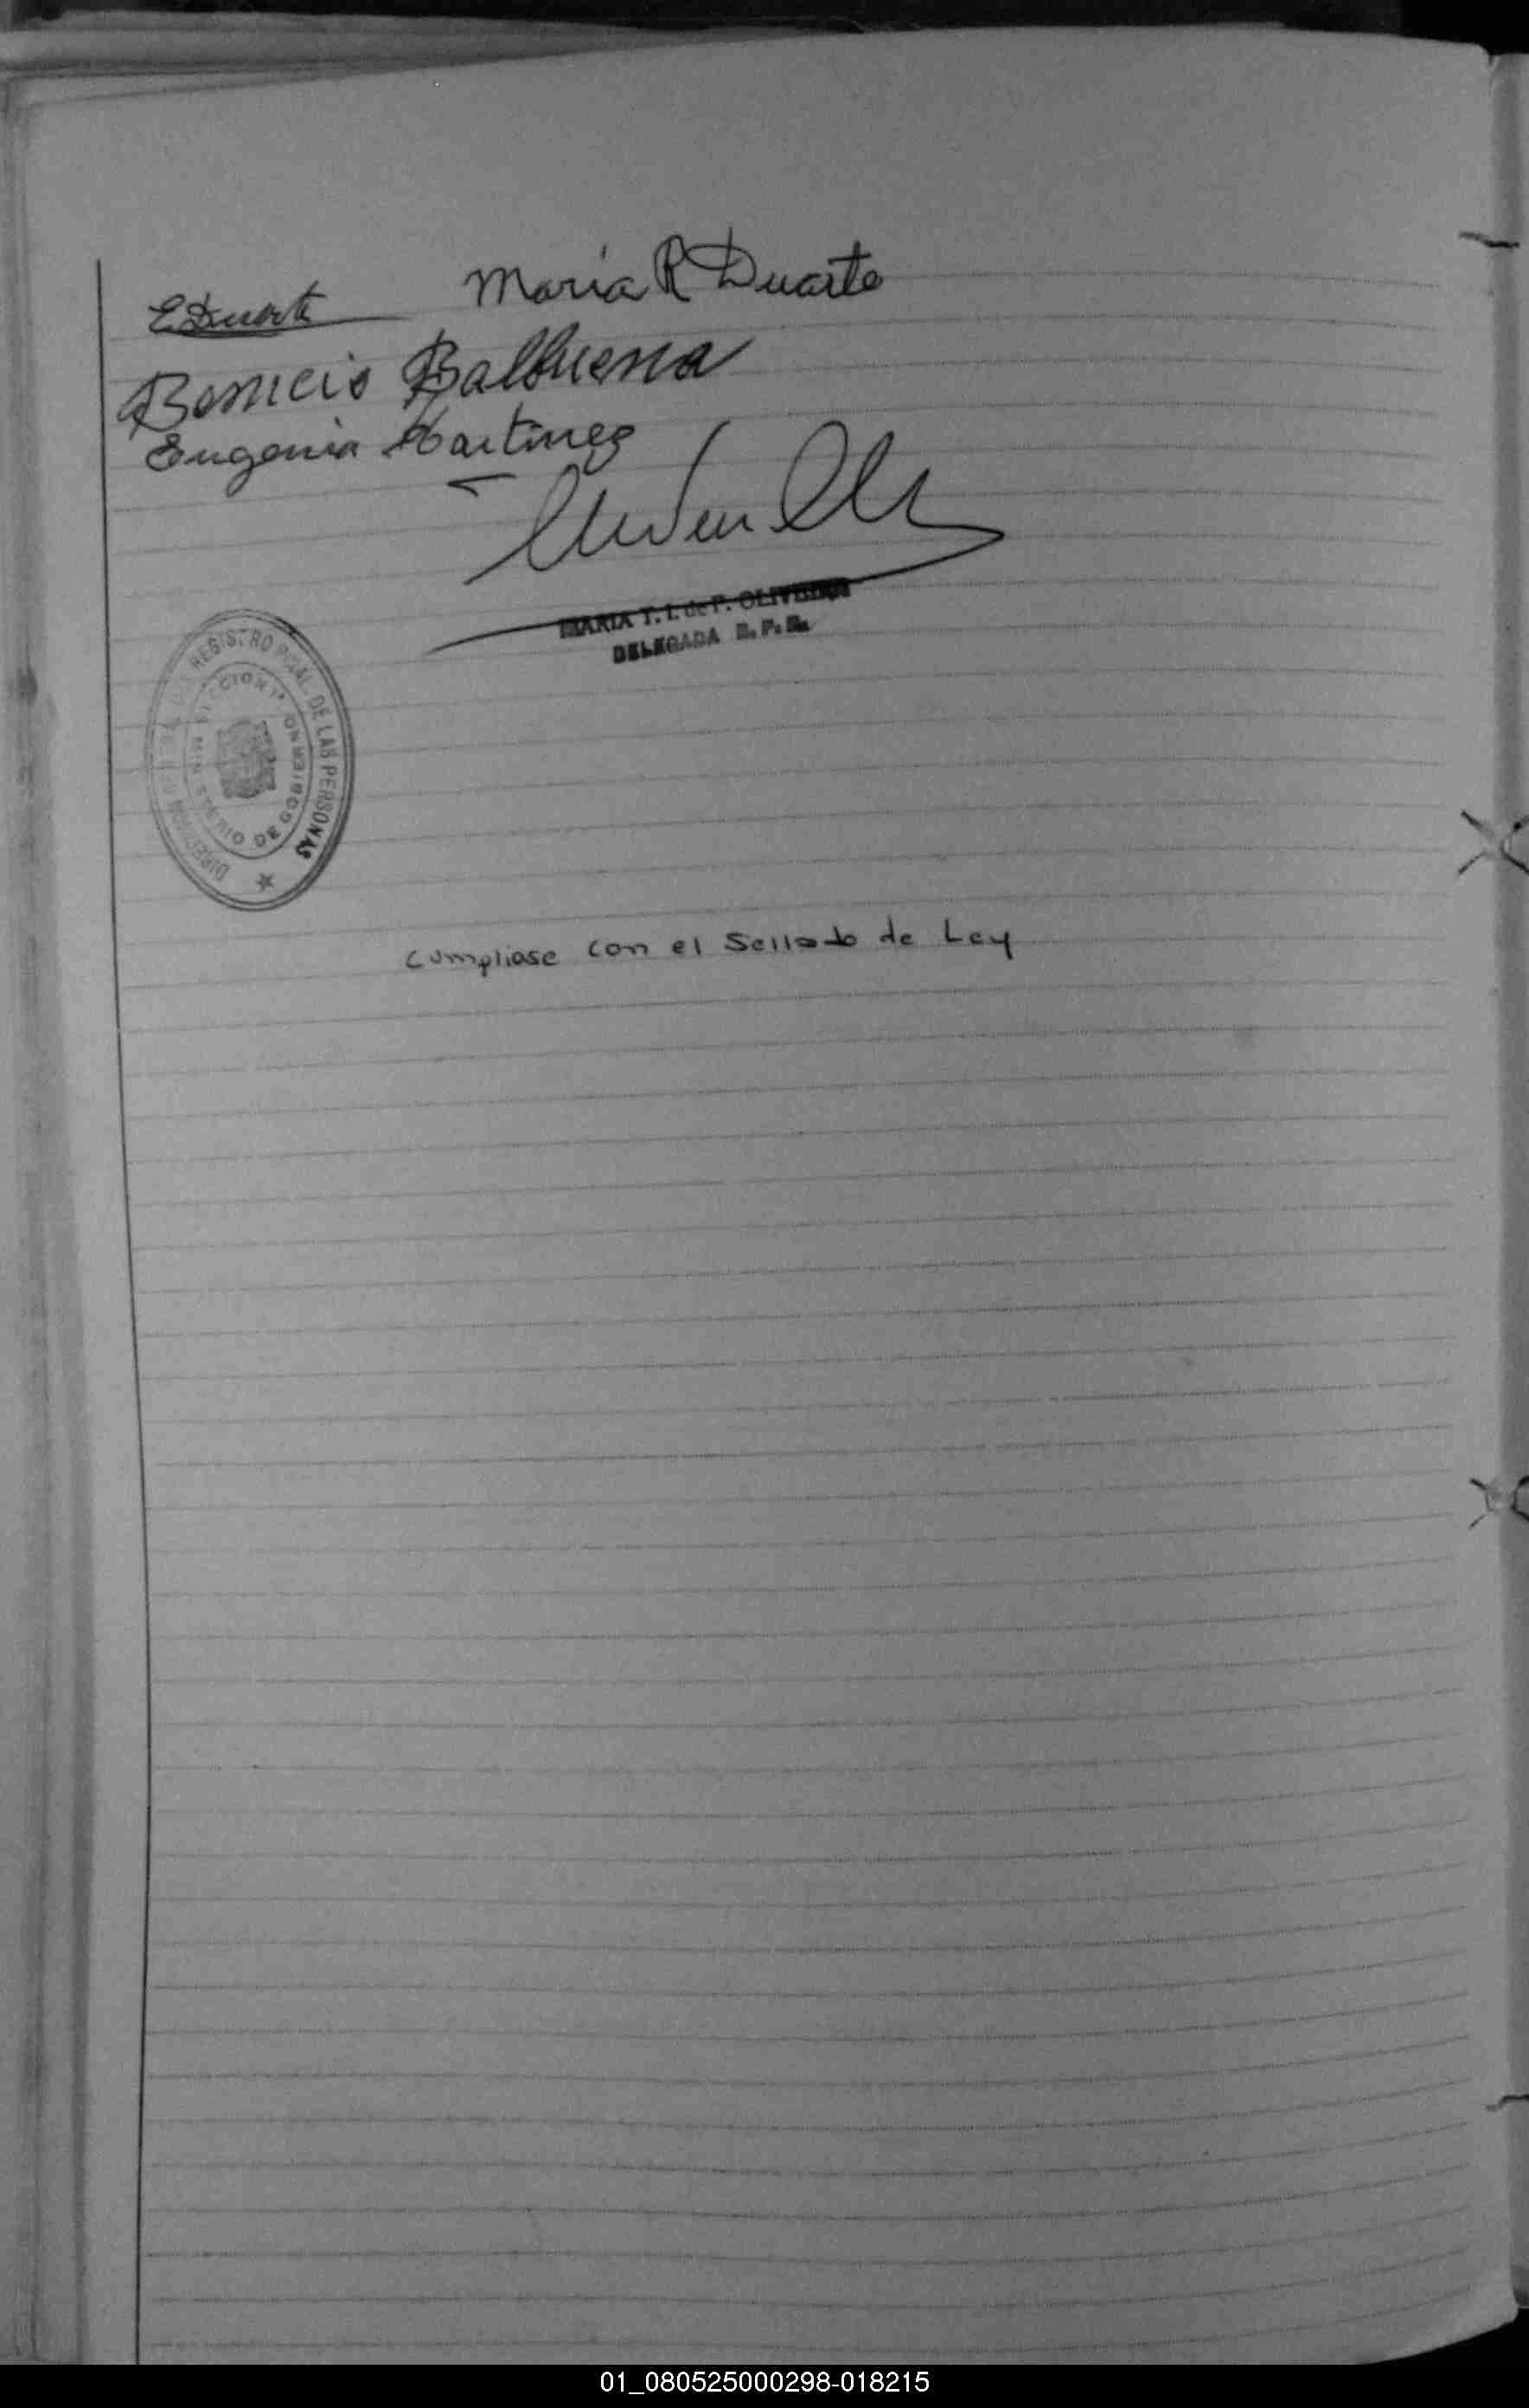 E Duarte
Maria R Duarte
Benicio Balbuena
Eugenia Martinez
MARIA T. I. de P. OLIVEIRA
DELEGADA R. P. P.
DIRECCION REGISTRO PCIAL. DE LAS PERSONAS
MINISTERIO DE GOBIERNO
cumpliase con el Sellado de Ley
01_080525000298-018215